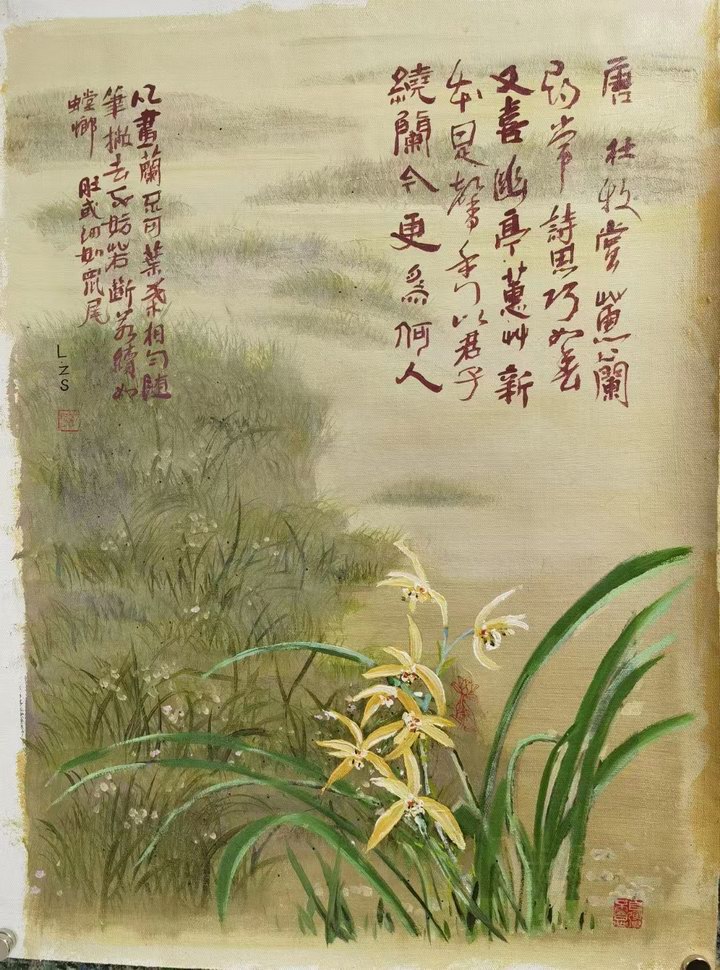 唐 杜牧 賞蕙蘭
尋常詩思巧如春
又喜幽亭蕙艸新
本是馨香比君子
繞蘭今更為何人
凡畫蘭不可葉葉相勻隨
筆撇去不妨若斷若續如
螳螂肚或細如鼠尾
L.Z.S